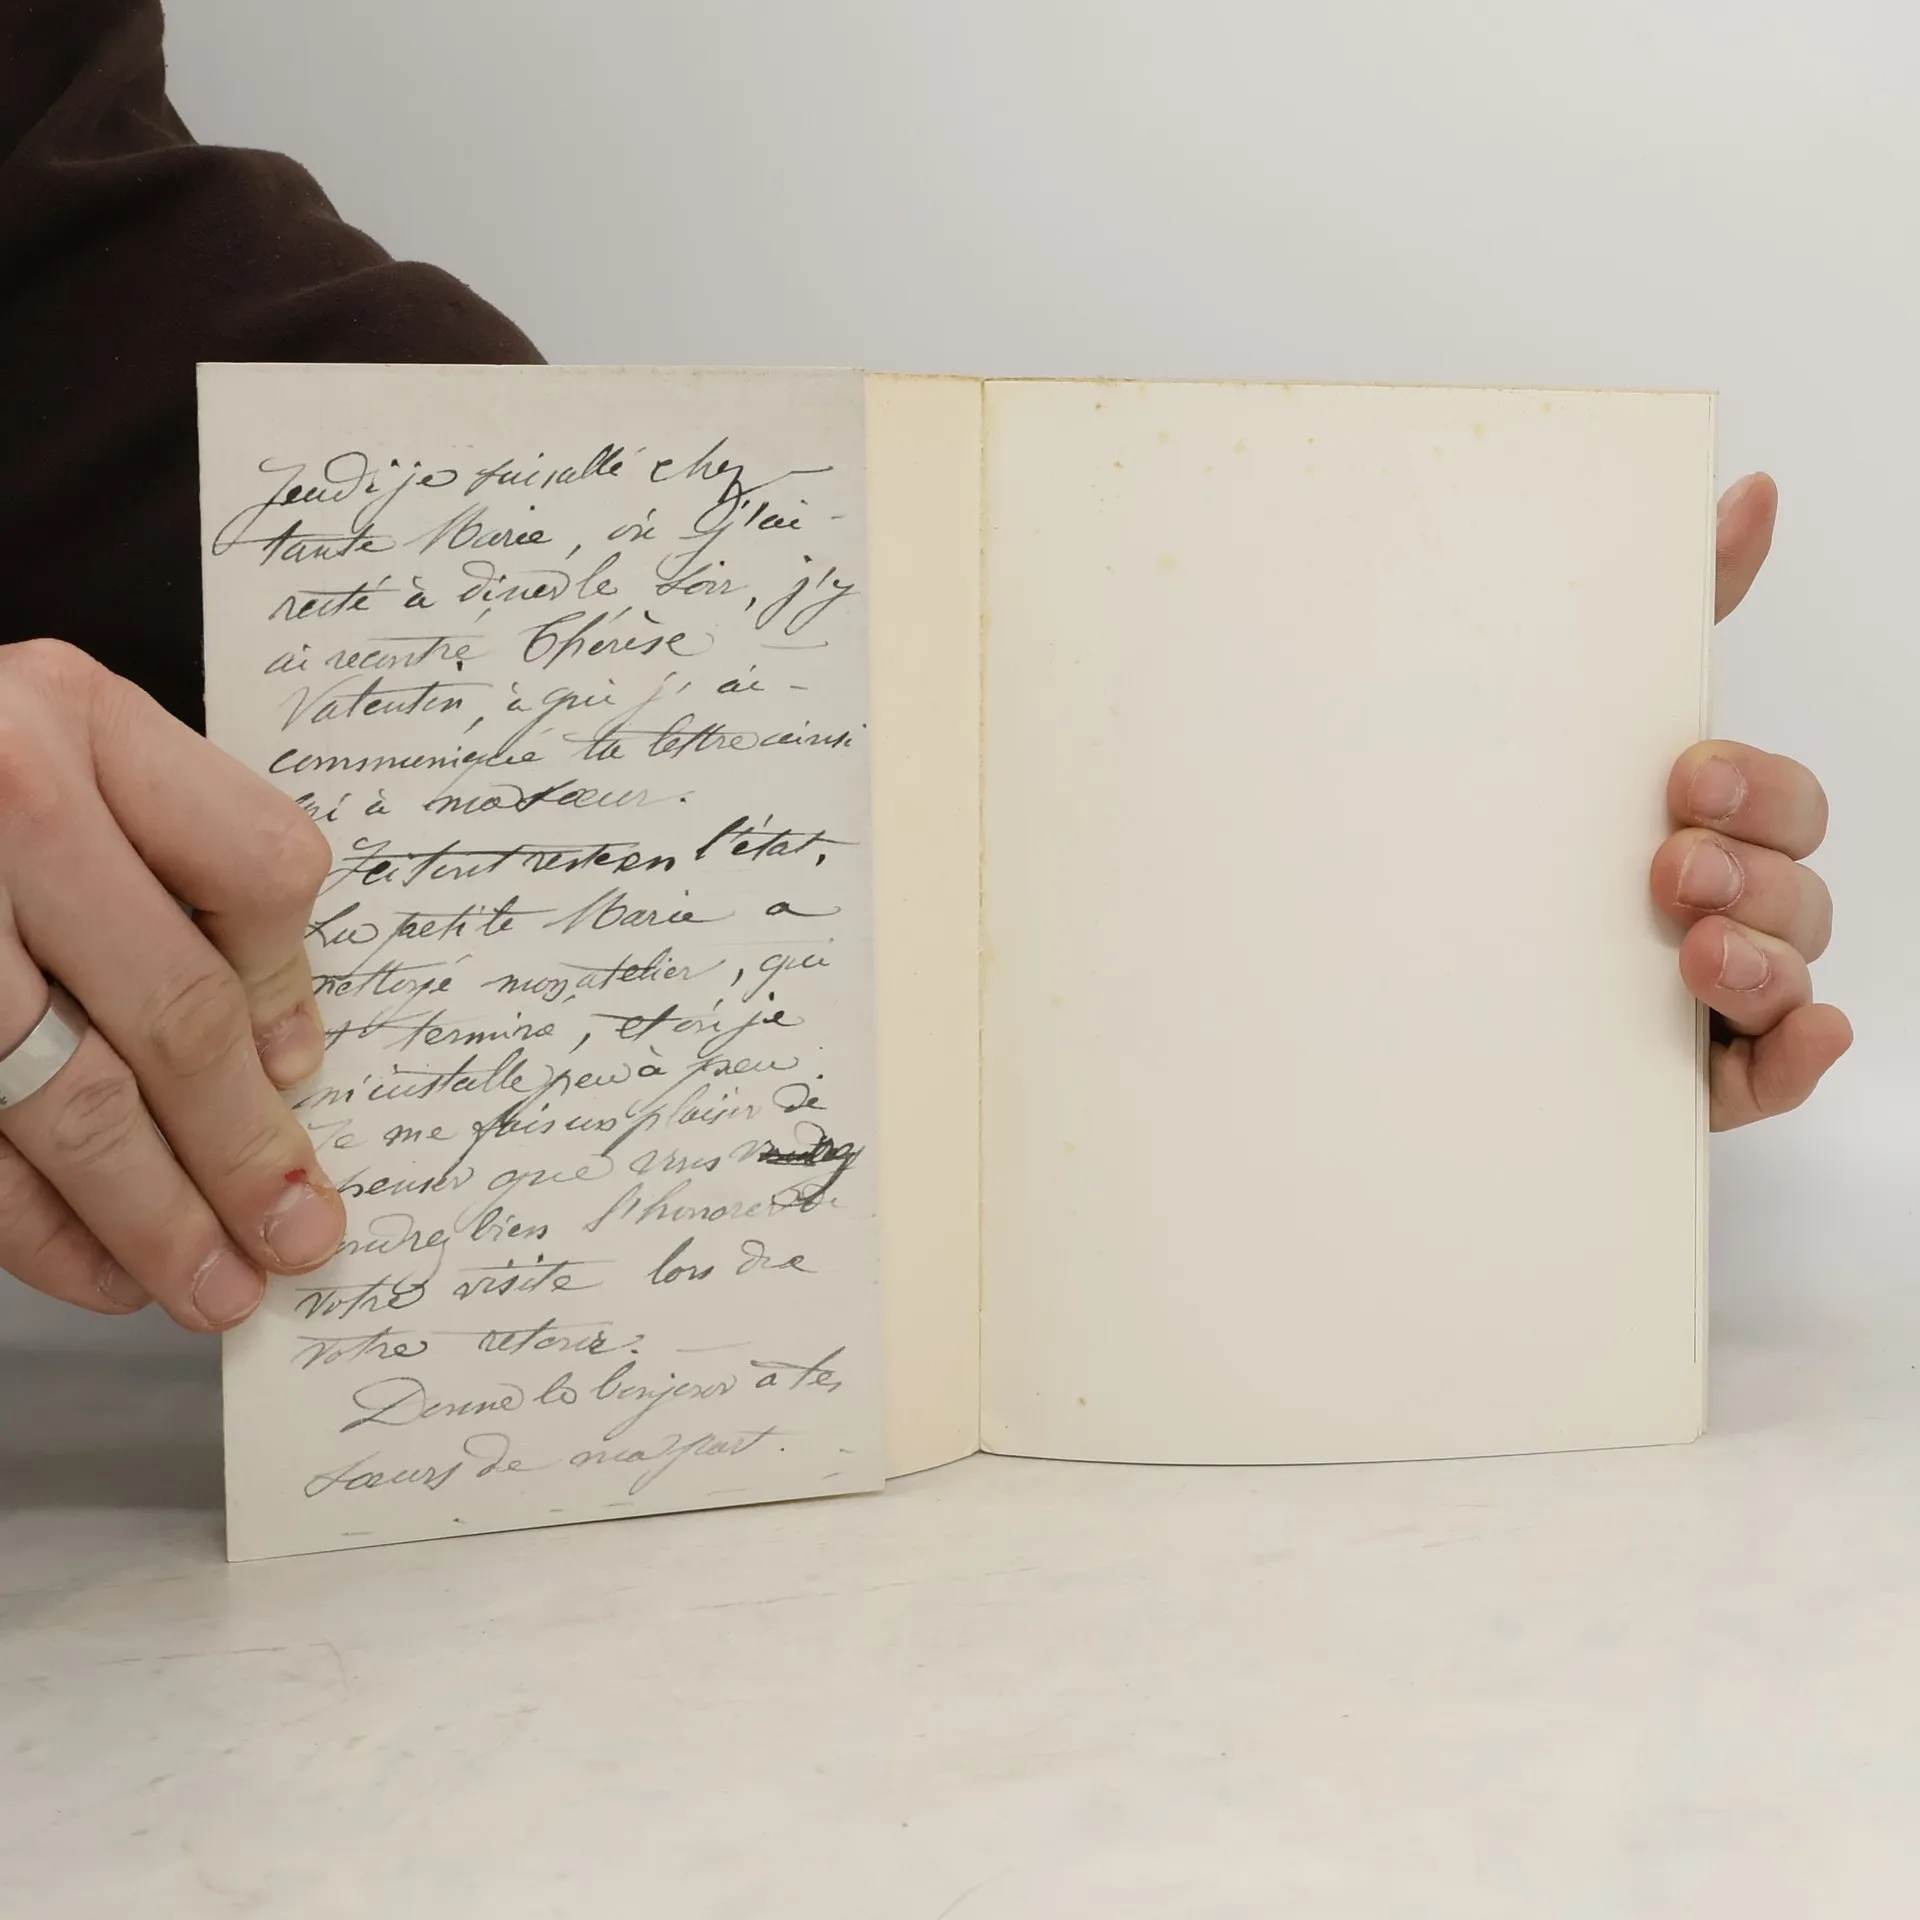 Jeudi je suis allé chez
tante Marie, où j'ai
resté à diner le soir, j'y
ai recontré Thérèse
Valentin, à qui j'ai
communiqué ta lettre ainsi
qui à ma soeur.
Ici tout reste en l'état,
La petite Marie a
nettoyé mon atelier, qui
est terminé, et où je
m'installe peu à peu.
Je me fais un plaisir de
penser que vous
voudrez bien l'honorer de
votre visite lors de
votre retour.
Donne le bonjour à tes
soeurs de ma part.